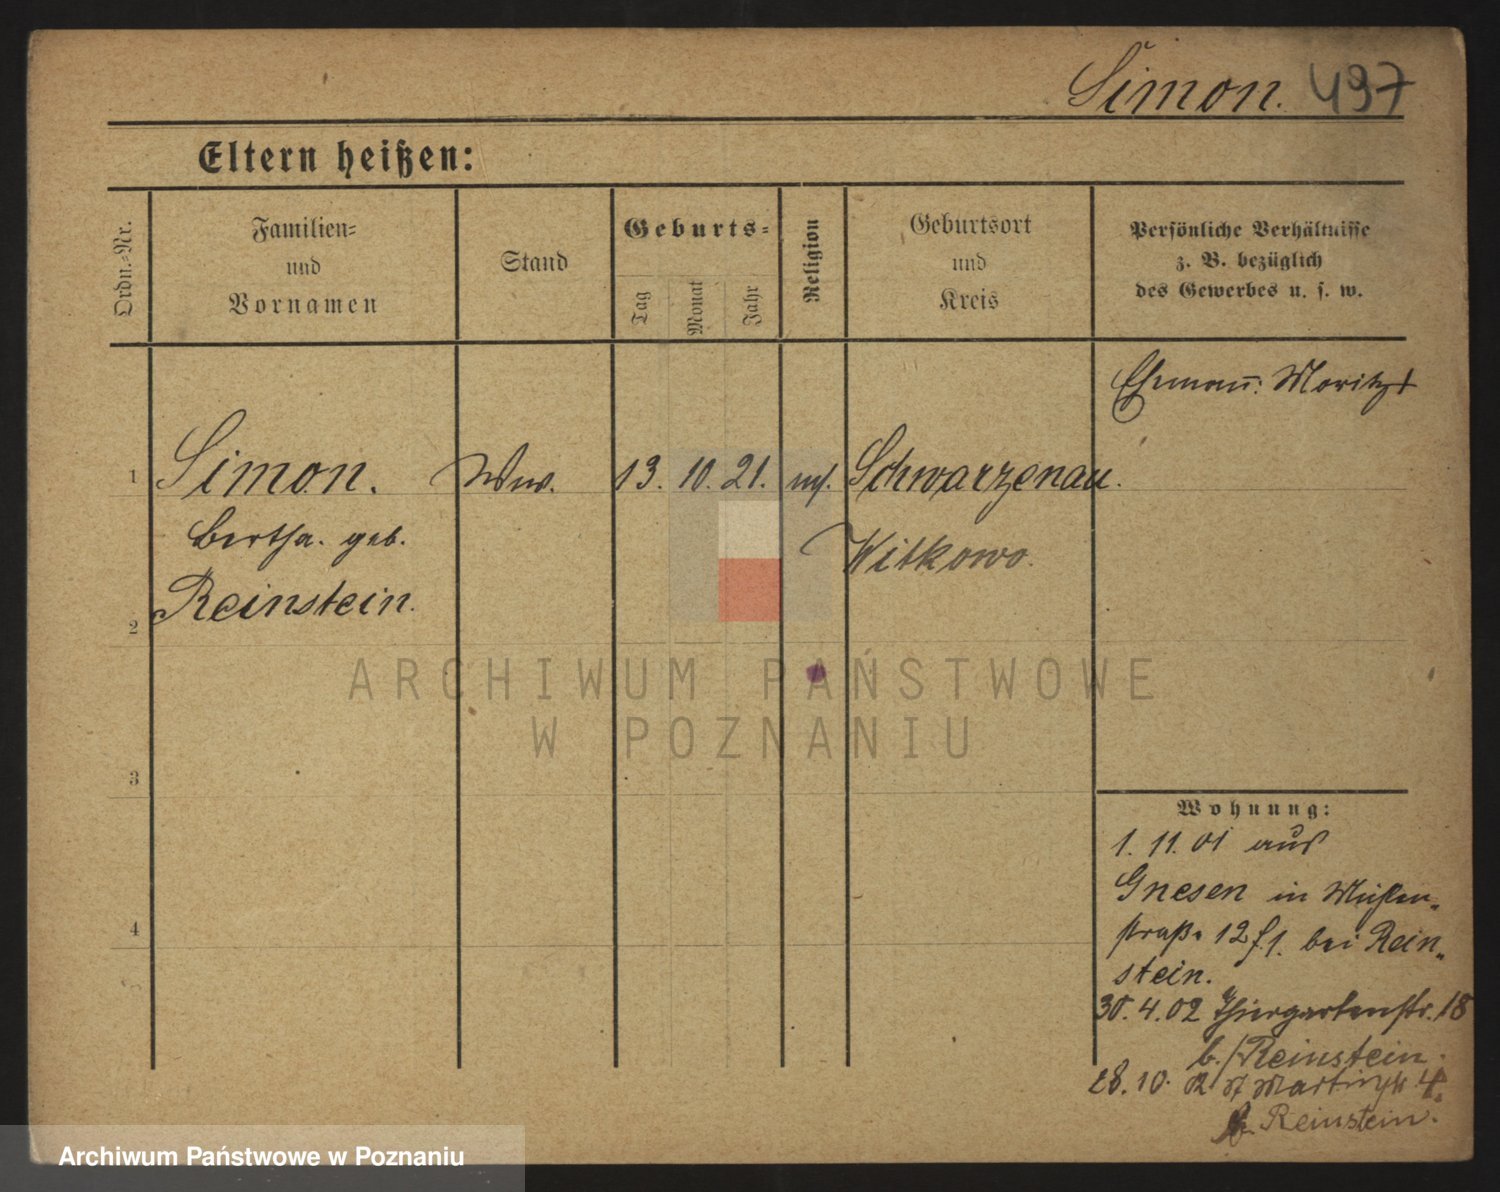 Simon. 497
Eltern heißen:
Ordn.-Nr.
Familien-
und
Vornamen
Stand
Geburts-
Tag
Monat
Jahr
Religion
Geburtsort
und
Kreis
Persönliche Verhältnisse
z. B. bezüglich
des Gewerbes u. s. w.
Ehemann: Moritz †
1 Simon. Ww. 13. 10. 21. mos. Schwarzenau.
Bertha. geb. Witkowo.
Reinstein.
2
3
4
Wohnung:
1. 11. 01 aus
Gnesen in
straße 12 bei Rein-
stein.
30. 4. 02 Thiergartenstr. 18
b. Reinstein.
28. 10. 02 St Martinstr. 4.
b. Reinstein.
ARCHIWUM PAŃSTWOWE
W POZNANIU
Archiwum Państwowe w Poznaniu